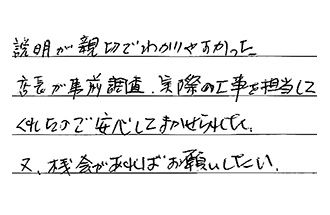 説明が親切でわかりやすかった
店長が事前調査、実際の工事を担当して
くれたので安心してまかせられました。
又、機会があればお願いしたい。